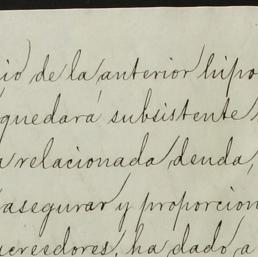 io de la anterior hipo
quedará subsistente
a relacionada deuda,
asegurar y proporcion
acreedores, ha dado a